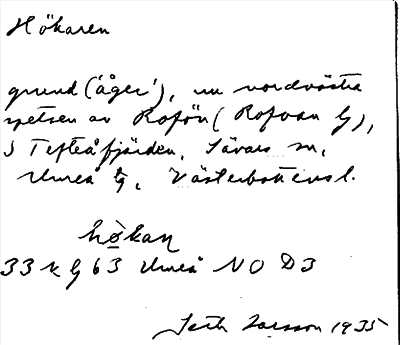 Hökaren
grund ('åger'), nu nordvästra
spetsen av Rofön (Rofvan G),
S Tefteåfjärden, Sävars sn,
Umeå tg, Västerbottensl.
hø̀kan
33 k G 63 Umeå NO D3
Seth Larsson 1935